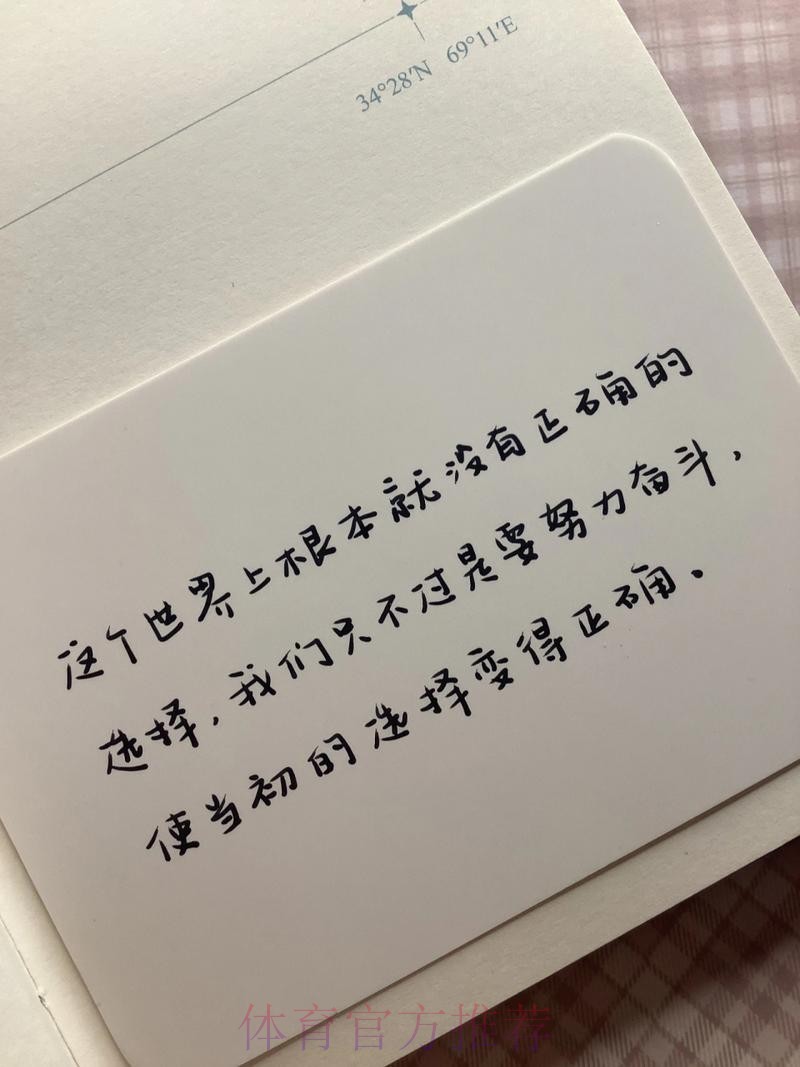 34°28′N 69°11′E
这个世界上根本就没有正确的
选择，我们只不过是要努力奋斗，
使当初的选择变得正确。
体育官方推荐